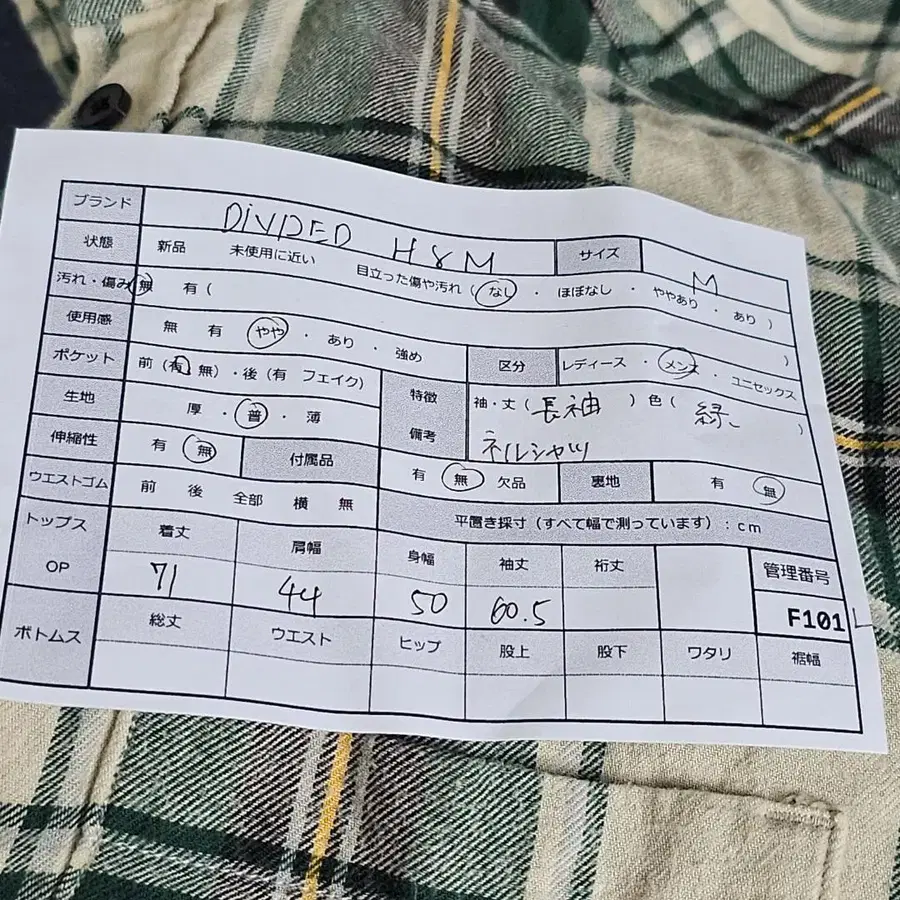 ブランド DIVIDED H&M サイズ M
状態 新品 未使用に近い 目立った傷や汚れ ( なし ・ ほぼなし ・ ややあり ・ あり )
汚れ・傷み 無 有 ( )
使用感 無 有 やや ・ あり ・ 強め 区分 レディース ・ メンズ ・ ユニセックス
ポケット 前 (有 無) ・後 (有 フェイク) 特徴 備考 袖・丈 ( 長袖 ) 色 ( 緑 )
生地 厚 ・ 普 ・ 薄 ネルシャツ
伸縮性 有 無 付属品 有 無 欠品 裏地 有 無
ウエストゴム 前 後 全部 横 無 平置き採寸 (すべて幅で測っています) : cm
トップス OP 着丈 肩幅 身幅 袖丈 裄丈 管理番号
71 44 50 60.5 F101
ボトムス 総丈 ウエスト ヒップ 股上 股下 ワタリ 裾幅